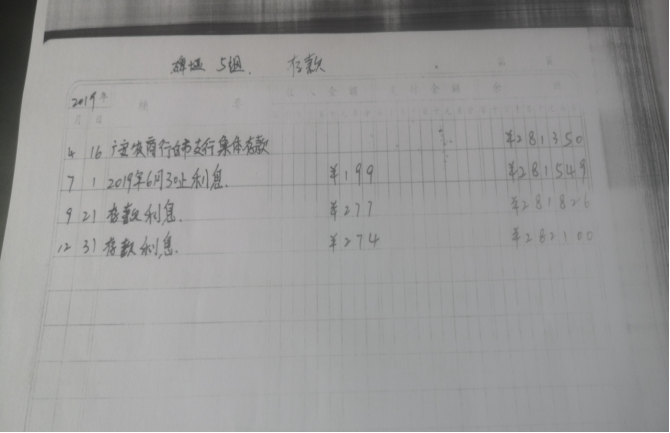 碑垭5组 存款
2019年 摘要 收入金额 支付金额
月 日
4 16 广安农商行白市支行集体存款 ¥281350
7 1 2019年6月30止利息 ¥199 ¥281549
9 21 存款利息 ¥277 ¥281826
12 31 存款利息 ¥274 ¥282100